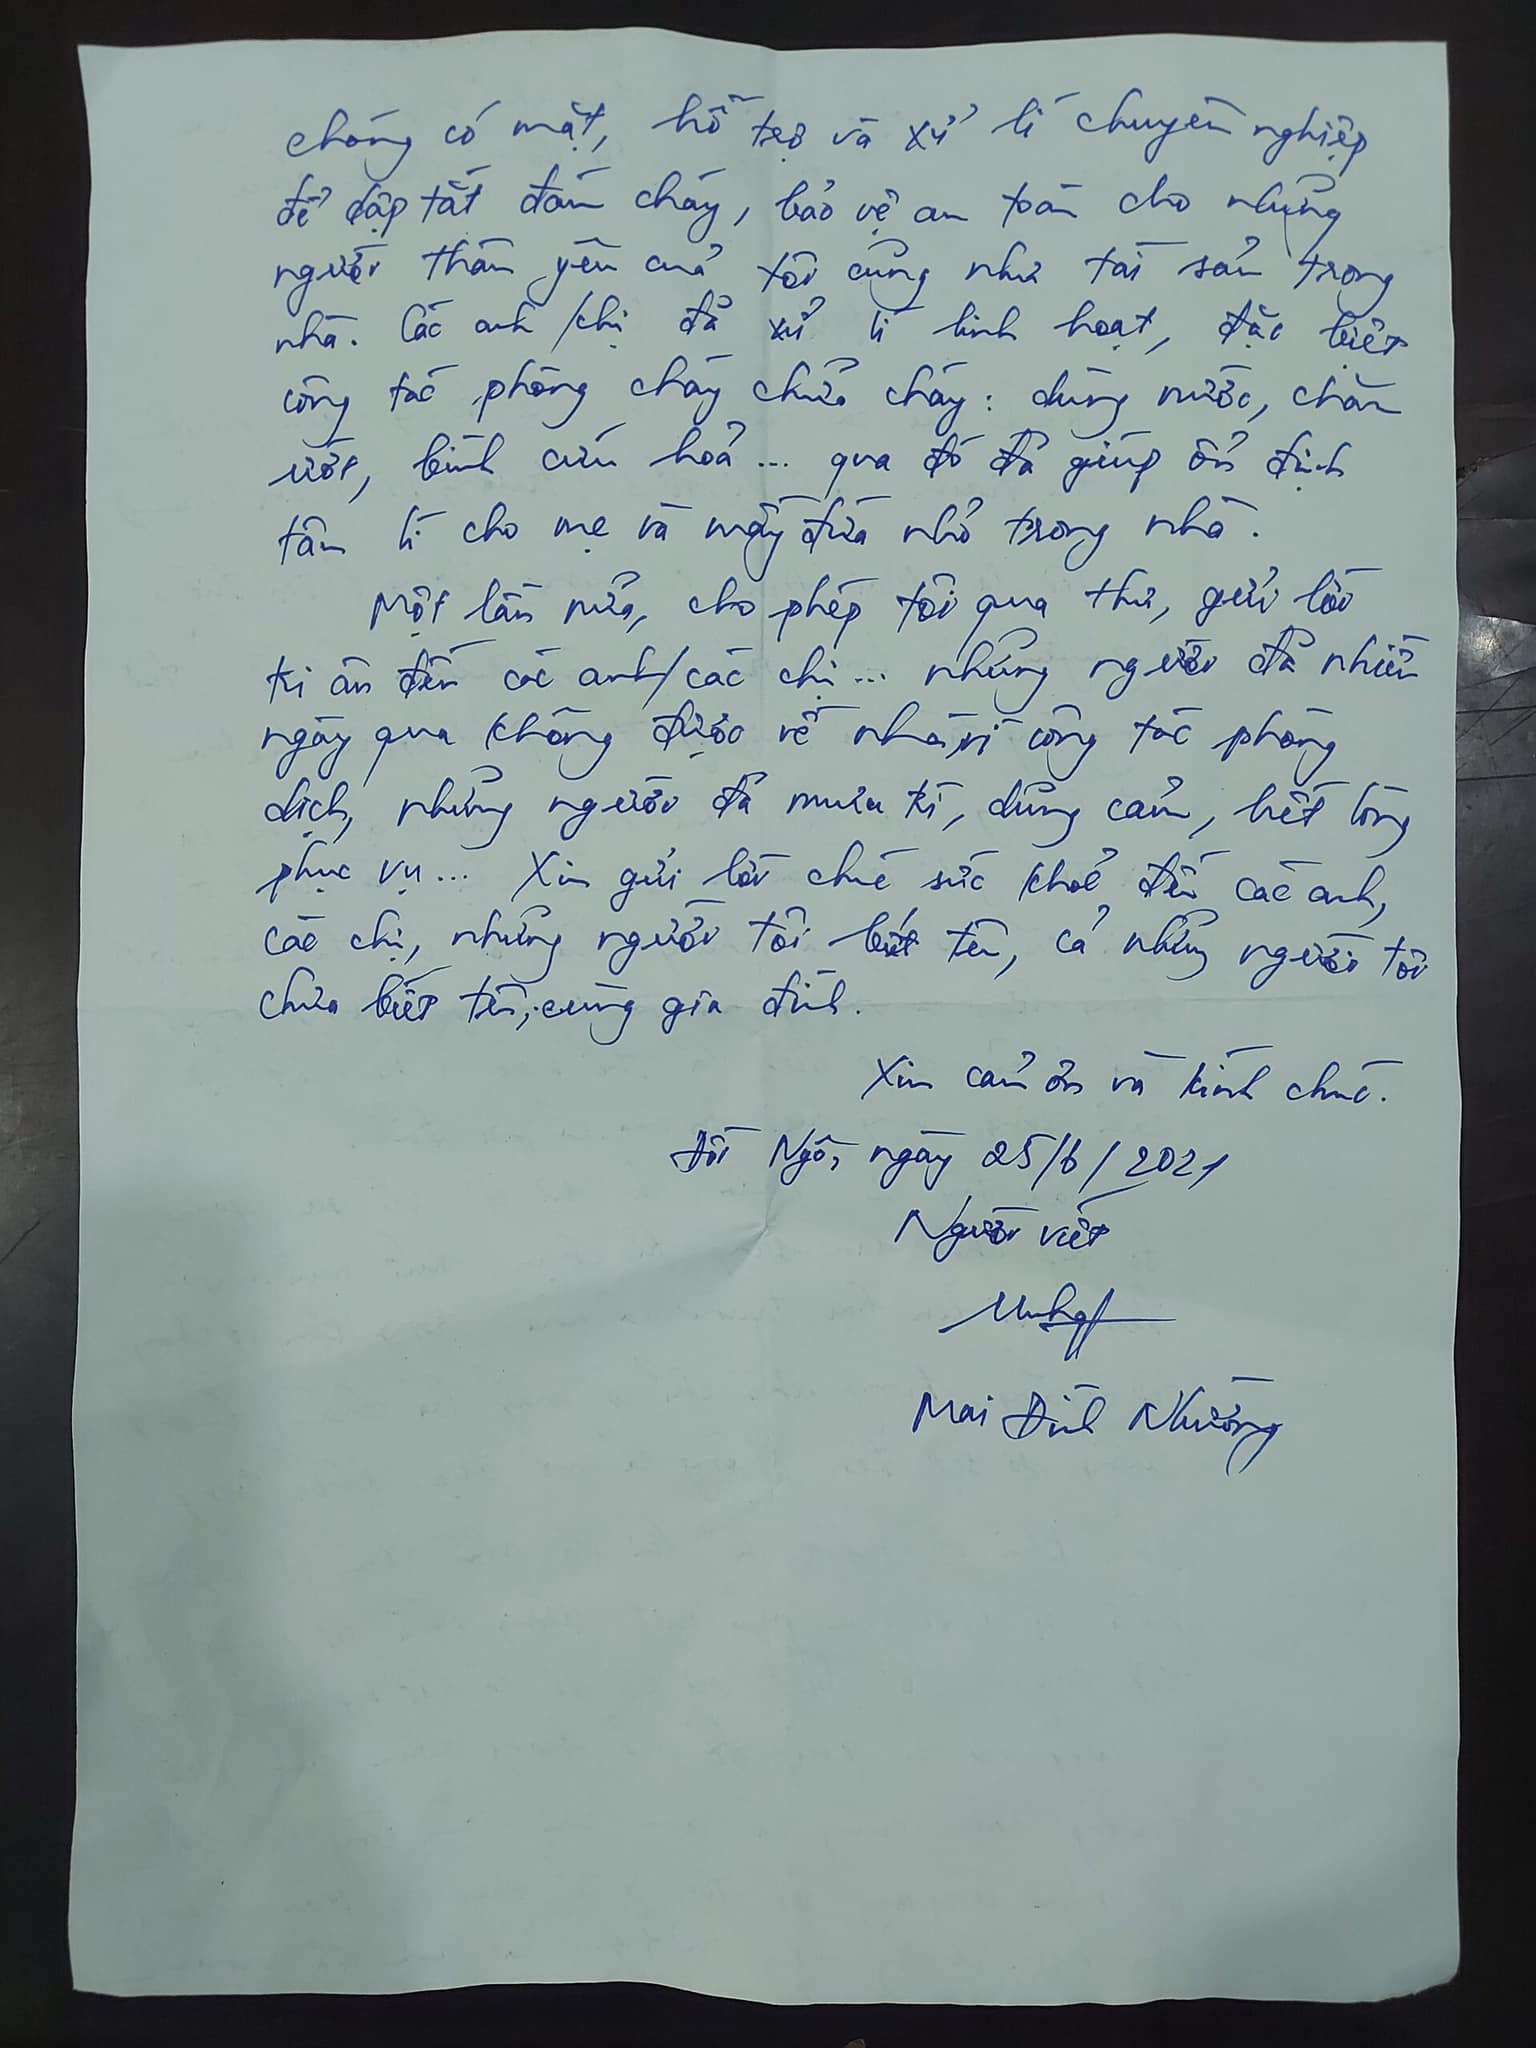 chóng có mặt, hỗ trợ và xử lí chuyên nghiệp
để dập tắt đám cháy, bảo vệ an toàn cho những
người thân yêu của tôi cũng như tài sản trong
nhà. Các anh/chị đã xử lí linh hoạt, đặc biệt
công tác phòng cháy chữa cháy: dùng nước, chăn
ướt, bình cứu hoả... qua đó đã giúp ổn định
tâm lí cho mẹ và mấy đứa nhỏ trong nhà.
Một lần nữa, cho phép tôi qua thư, gửi lời
tri ân đến các anh/các chị... những người đã nhiều
ngày qua không được về nhà vì công tác phòng
dịch, những người đã mưu trí, dũng cảm, hết lòng
phục vụ... Xin gửi lời chúc sức khoẻ đến các anh,
các chị, những người tôi biết tên, cả những người tôi
chưa biết tên, cùng gia đình.
Xin cảm ơn và kính chúc.
Đồi Ngô, ngày 25/6/2021
Người viết
Mai Đình Nhường